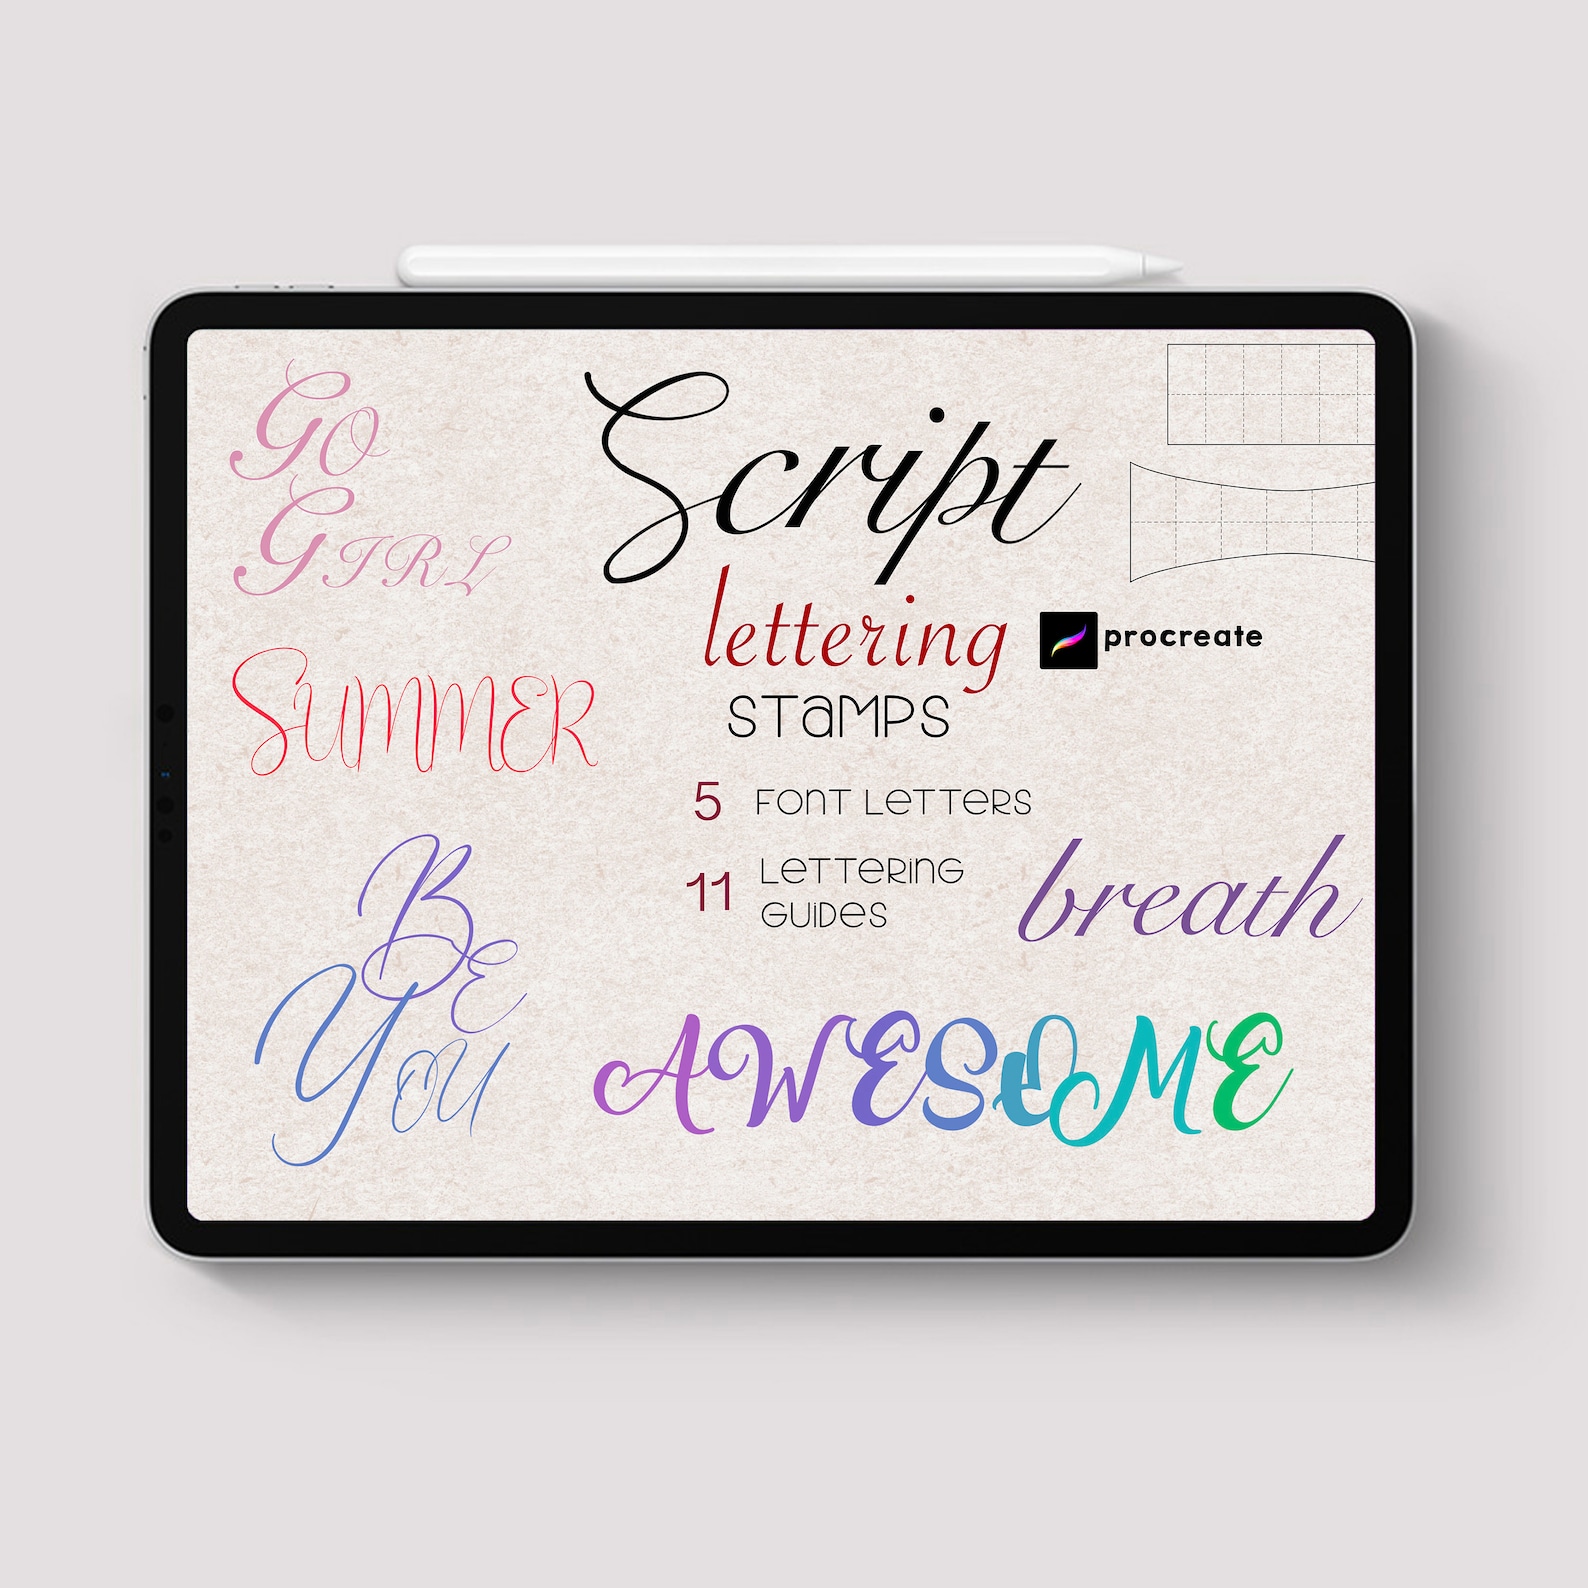 GO
GIRL
Script
lettering
STaMPS
procreate
SUMMER
5 FONT LeTTERS
11 LeTTERING
GUIDeS
breath
BE
YOU
AWESOME